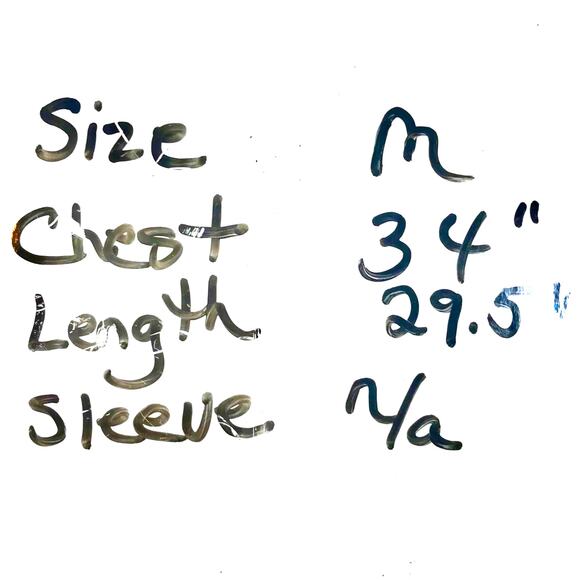 Size M
Chest 34"
Length 29.5"
Sleeve N/a